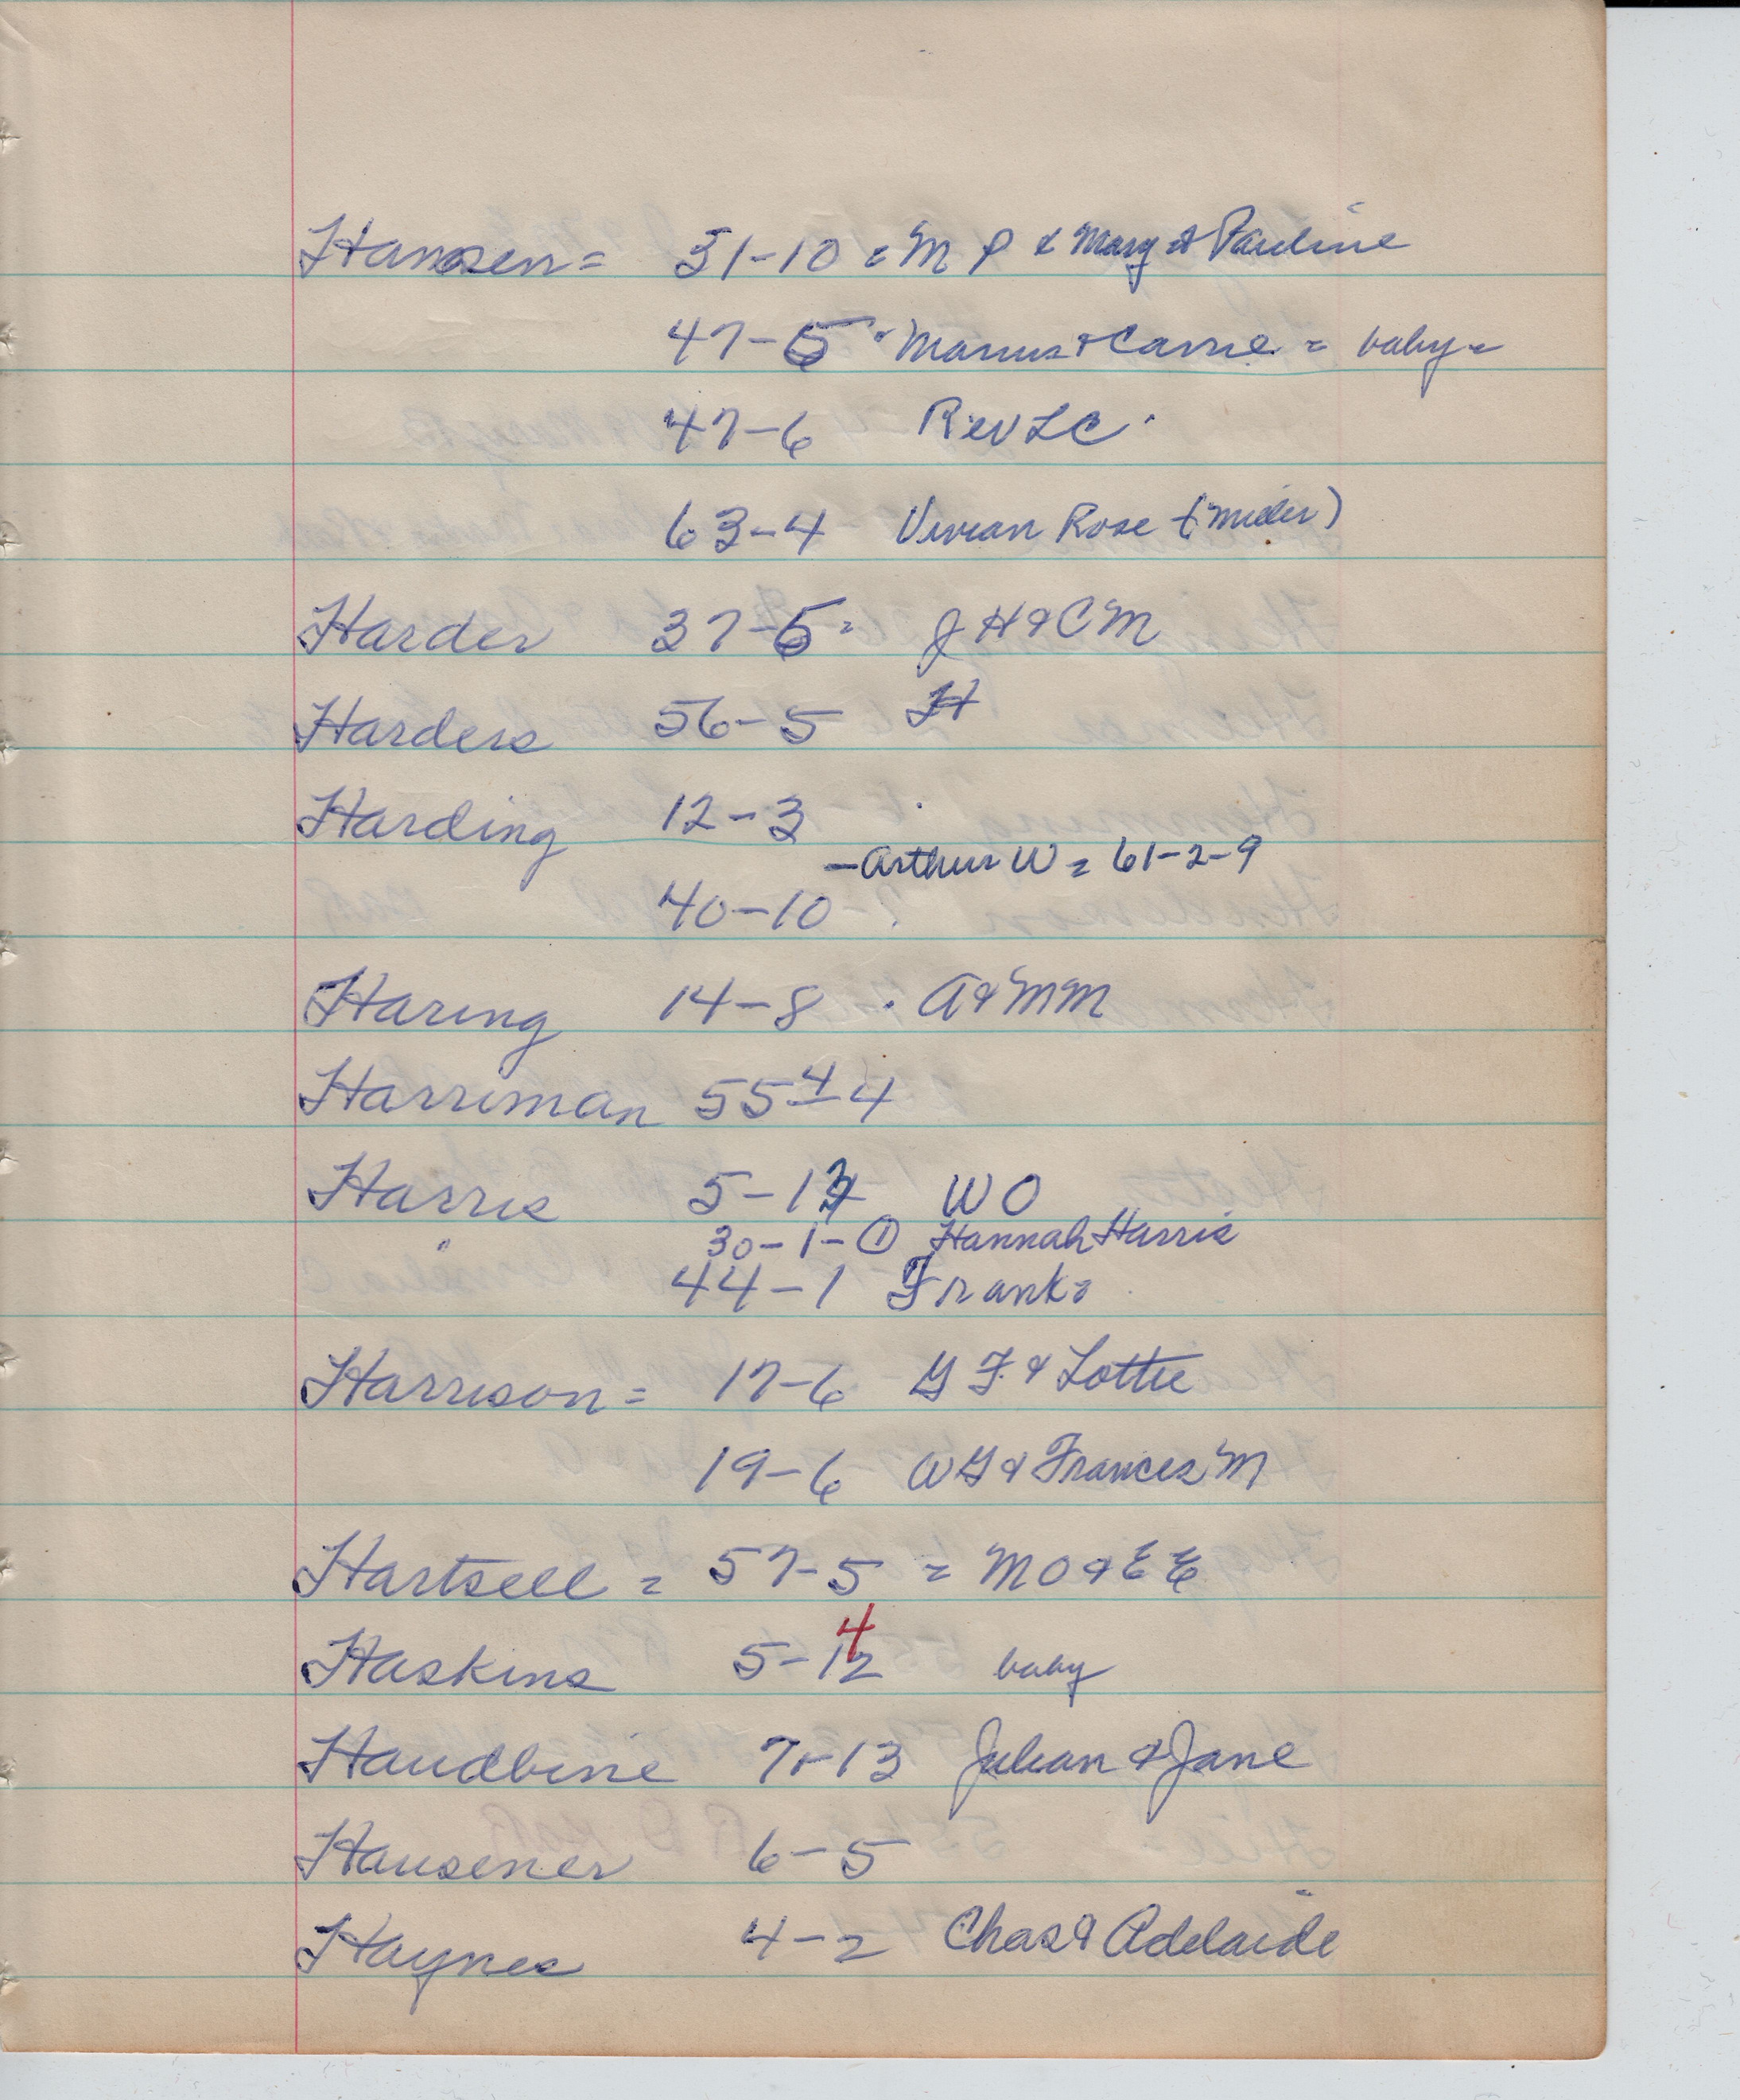 Hansen = 51-10 = M P & Mary & Pauline
47-5 Marius & Carrie = baby =
47-6 Rev L C
63-4 Vivian Rose (Miller)
Harder 37-5 = J H & C M
Harders 56-5 H
Harding 12-3
- Arthur W = 61-2-9
40-10
Haring 14-8 . A & M M
Harriman 55-4
Harris 5-13 W O
30-1-① Hannah Harris
" 44-1 Frank =
Harrison = 17-6 G F. & Lottie
19-6 W G & Frances M
Hartsell = 57-5 = M O & E E
4
Haskins 5-12 baby
Haudbine 7-13 Julian & Jane
Hausener 6-5
Haynes 4-2 Chas & Adelaide